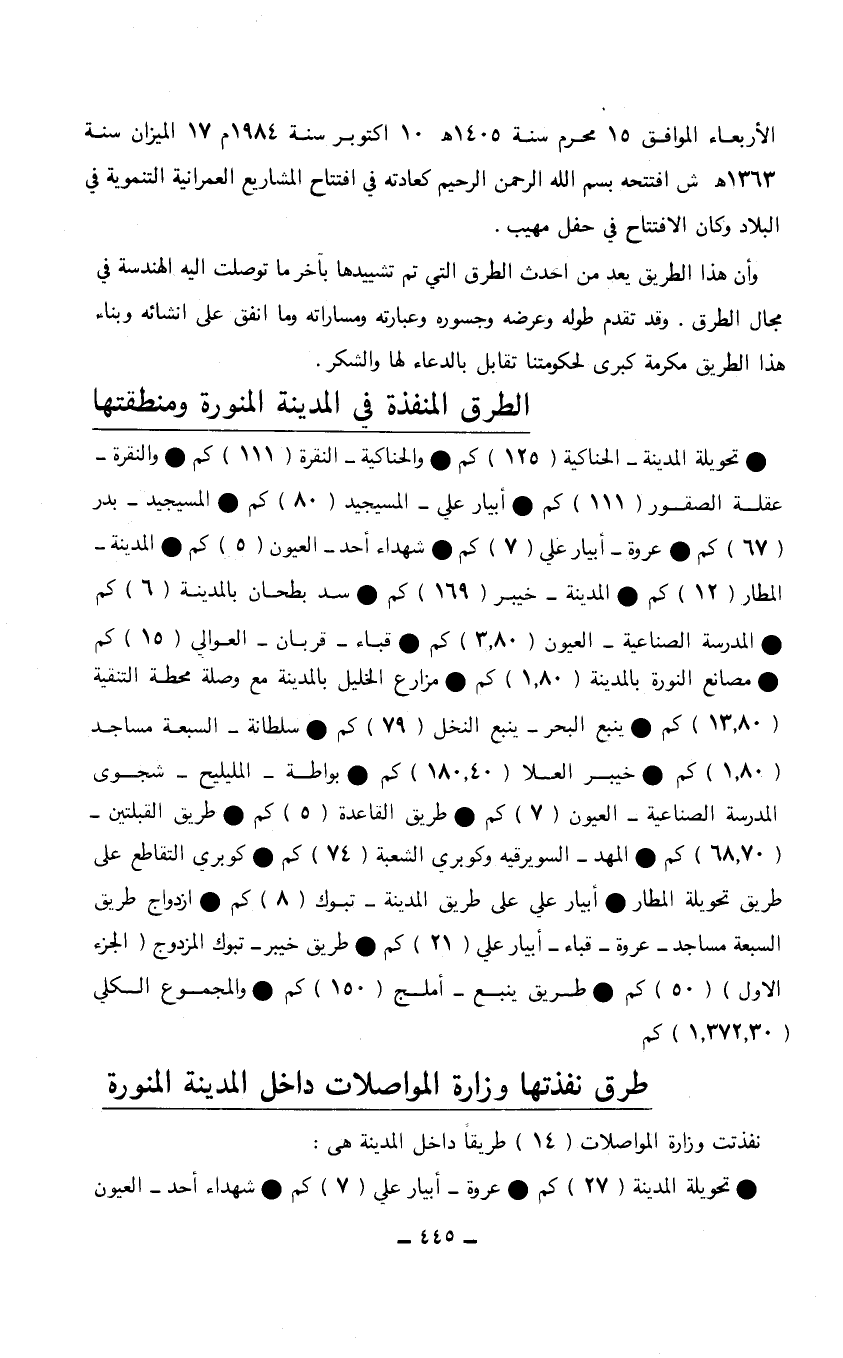 الأربعاء الموافق ١٥ محرم سنة ١٤٠٥هـ ١٠ اكتوبر سنة ١٩٨٤م ١٧ الميزان سنة
١٣٦٣هـ ش افتتحه بسم الله الرحمن الرحيم كعادته في افتتاح المشاريع العمرانية التنموية في
البلاد وكان الافتتاح في حفل مهيب .
وأن هذا الطريق يعد من احدث الطرق التي تم تشييدها بآخر ما توصلت اليه الهندسة في
مجال الطرق . وقد تقدم طوله وعرضه وجسوره وعبارته ومساراته وما انفق على انشائه وبناء
هذا الطريق مكرمة كبرى لحكومتنا تقابل بالدعاء لها والشكر .
الطرق المنفذة في المدينة المنورة ومنطقتها
● تحويلة المدينة ـ الحناكية ( ١٢٥ ) كم ● والحناكية ـ النقرة ( ١١١ ) كم ● والنقرة ـ
عقلة الصقور ( ١١١ ) كم ● أبيار علي ـ المسيجيد ( ٨٠ ) كم ● المسيجيد ـ بدر
( ٦٧ ) كم ● عروة ـ أبيار علي ( ٧ ) كم ● شهداء أحد ـ العيون ( ٥ ) كم ● المدينة ـ
المطار ( ١٢ ) كم ● المدينة ـ خيبر ( ١٦٩ ) كم ● سد بطحان بالمدينة ( ٦ ) كم
● المدرسة الصناعية ـ العيون ( ٣,٨٠ ) كم ● قباء ـ قربان ـ العوالي ( ١٥ ) كم
● مصانع النورة بالمدينة ( ١,٨٠ ) كم ● مزارع الخليل بالمدينة مع وصلة محطة التنقية
( ١٣,٨٠ ) كم ● ينبع البحر ـ ينبع النخل ( ٧٩ ) كم ● سلطانة ـ السبعة مساجد
( ١,٨٠ ) كم ● خيبر العلا ( ١٨٠,٤٠ ) كم ● بواطة ـ المليليح ـ شجوى
المدرسة الصناعية ـ العيون ( ٧ ) كم ● طريق القاعدة ( ٥ ) كم ● طريق القبلتين ـ
( ٦٨,٧٠ ) كم ● المهد ـ السويرقيه وكوبري الشعبة ( ٧٤ ) كم ● كوبري التقاطع على
طريق تحويلة المطار ● أبيار علي على طريق المدينة ـ تبوك ( ٨ ) كم ● ازدواج طريق
السبعة مساجد ـ عروة ـ قباء ـ أبيار علي ( ٢١ ) كم ● طريق خيبر ـ تبوك المزدوج ( الجزء
الاول ) ( ٥٠ ) كم ● طريق ينبع ـ أملج ( ١٥٠ ) كم ● والمجموع الكلي
( ١,٣٧٢,٣٠ ) كم
طرق نفذتها وزارة المواصلات داخل المدينة المنورة
نفذتت وزارة المواصلات ( ١٤ ) طريقاً داخل المدينة هى :
● تحويلة المدينة ( ٢٧ ) كم ● عروة ـ أبيار علي ( ٧ ) كم ● شهداء أحد ـ العيون
ـ ٤٤٥ ـ